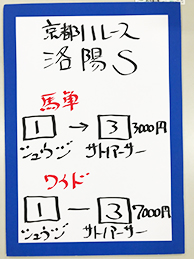 京都11レース
洛陽S
馬単
1 → 3 3000円
シュウジ サトノアーサー
ワイド
1 ー 3 7000円
シュウジ サトノアーサー